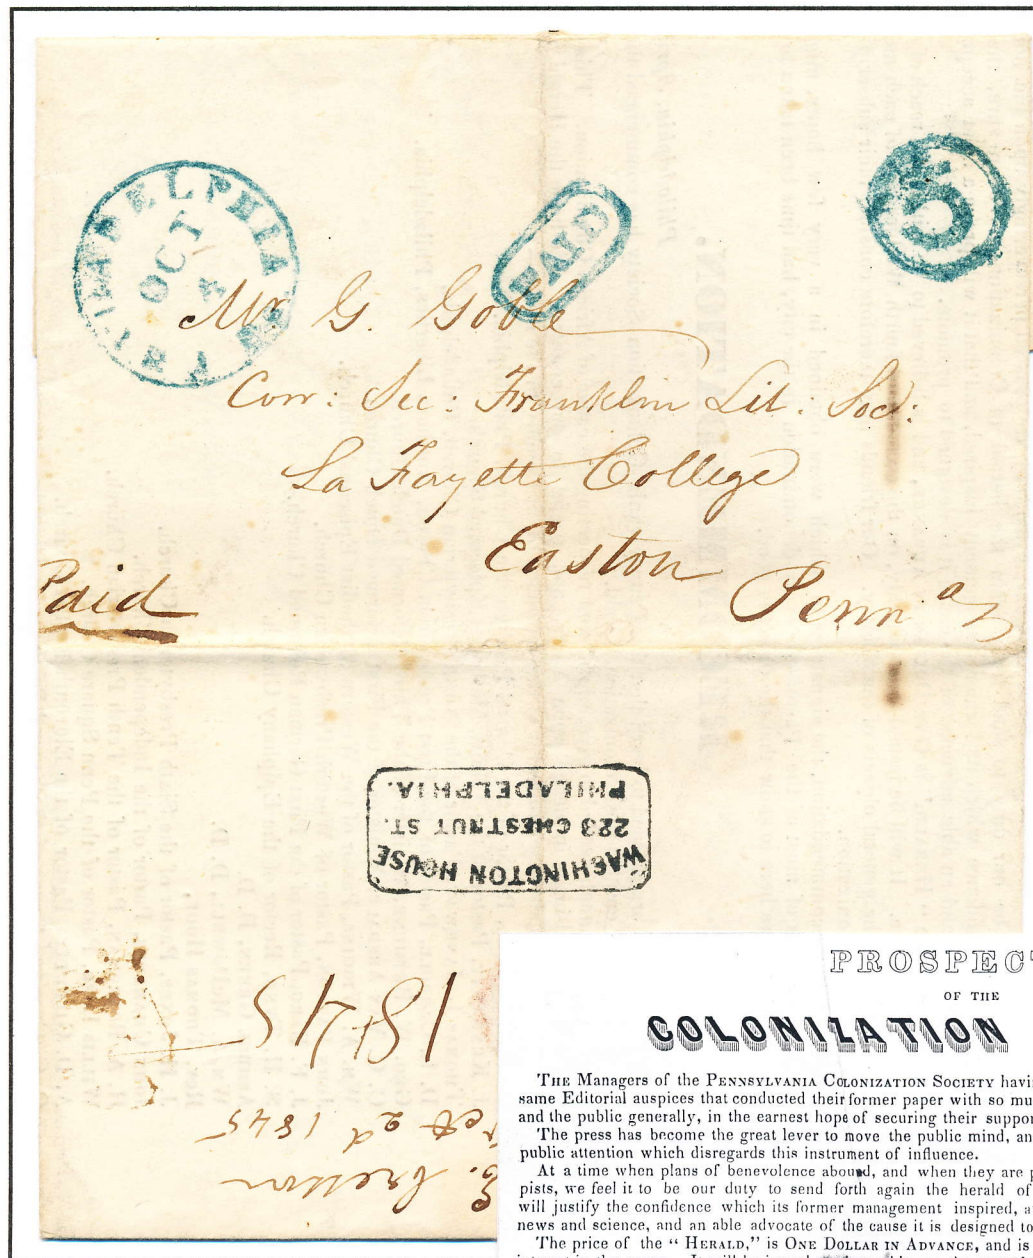 PHILADELPHIA Pa
OCT
4
PAID
5
Mr G. Goble
Corr: Sec: Franklin Lit: Soc:
La Fayette College
Easton
Penn a
Paid
WASHINGTON HOUSE
223 CHESTNUT ST.
PHILADELPHIA.
1845
E. Cresson
Oct 2d 1845
PROSPEC
OF THE
COLONIZATION
THE Managers of the PENNSYLVANIA COLONIZATION SOCIETY havi
same Editorial auspices that conducted their former paper with so mu
and the public generally, in the earnest hope of securing their suppor
The press has become the great lever to move the public mind, an
public attention which disregards this instrument of influence.
At a time when plans of benevolence abound, and when they are p
pists, we feel it to be our duty to send forth again the herald of
will justify the confidence which its former management inspired, a
news and science, and an able advocate of the cause it is designed to
The price of the "HERALD," is ONE DOLLAR IN ADVANCE, and is